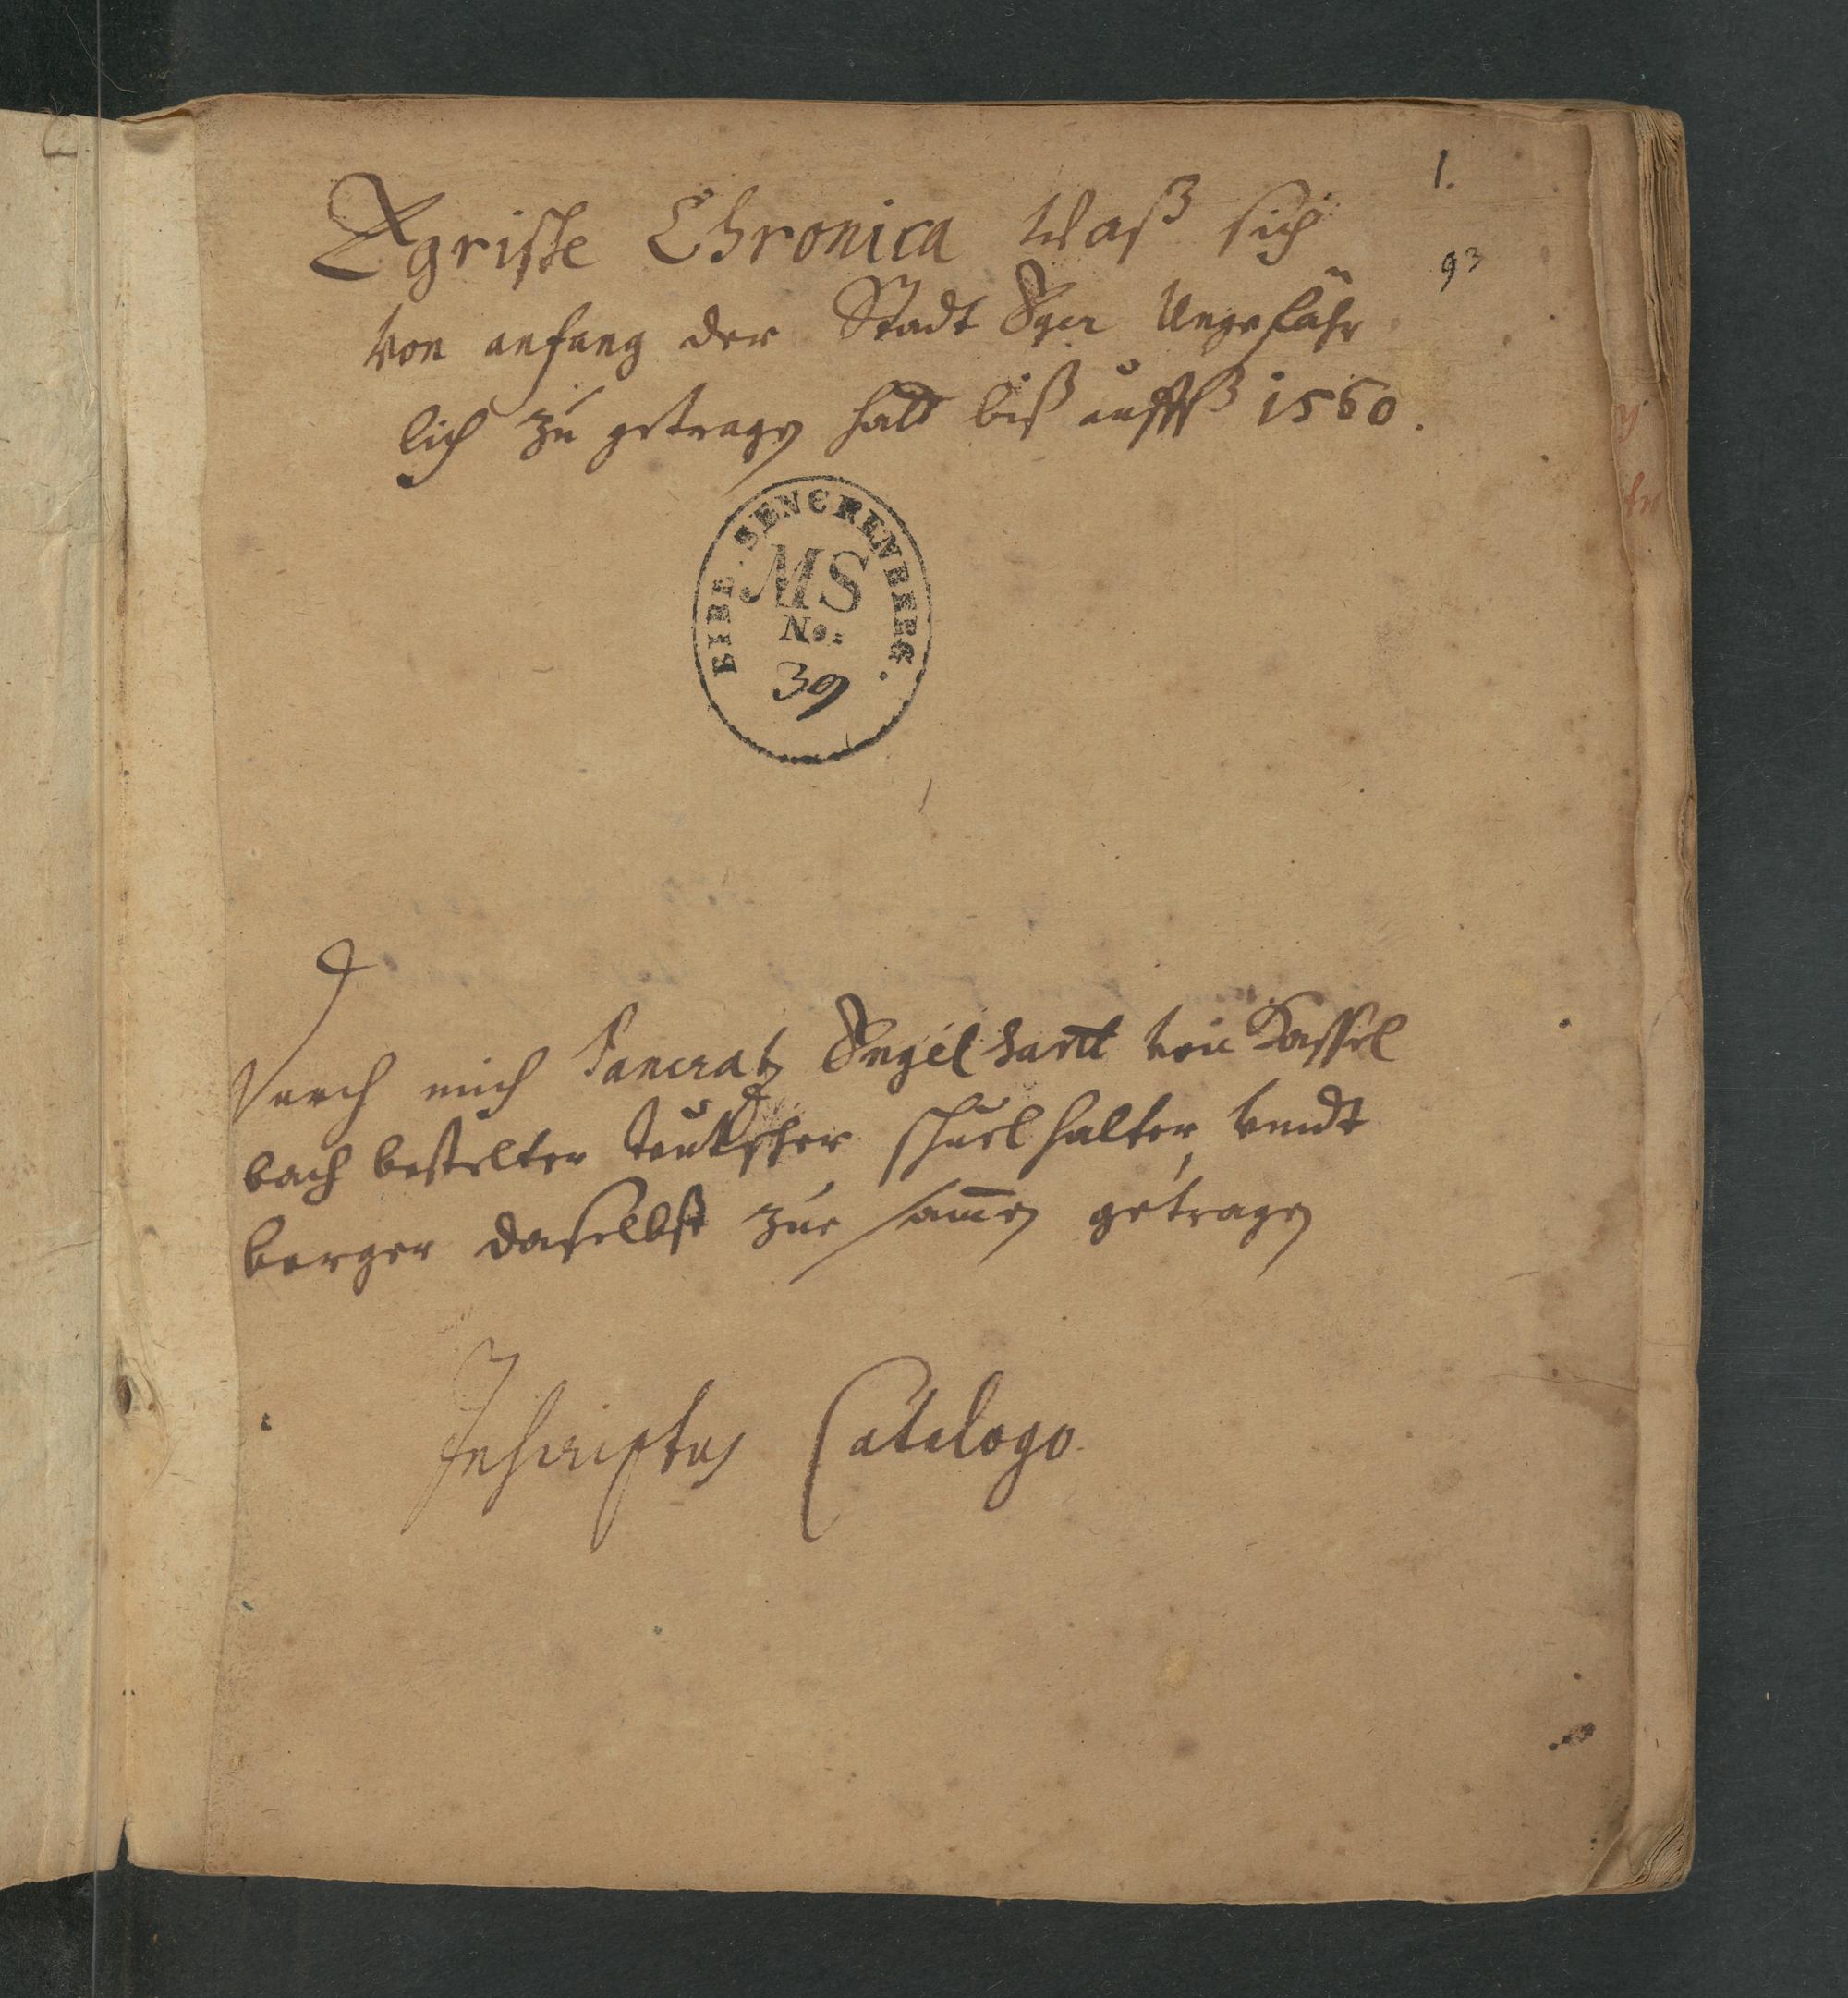 1.
Egriske Chronica Waß sich
93
Von anfang der Stadt Eger Ungefähr
lich zu getragen hatt biß auffß 1560.
BIBL. SENCKENBERG.
MS
No:
39
Durch mich Pancratz Engelhartt von Hassel
bach bestelter teutscher schuel halter, vnndt
burger daselbst zue samen getragen
Inscriptus Catalogo.